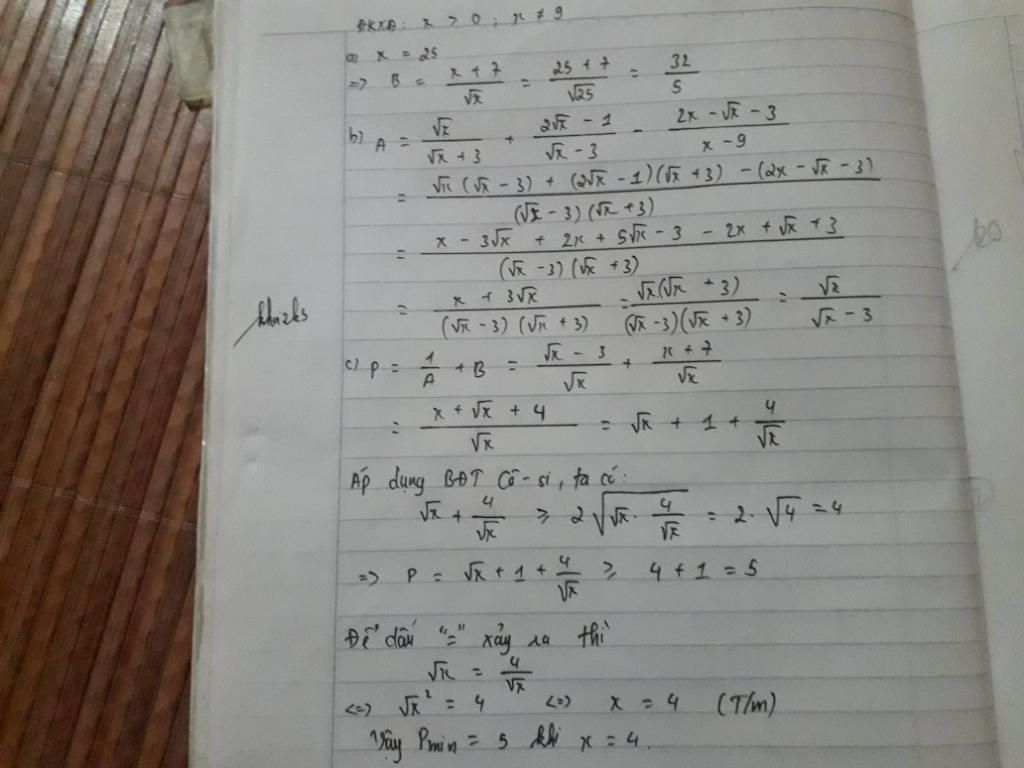 ĐKXĐ: x > 0 ; x ≠ 9
a) x = 25
=> B = (x + 7)/√x = (25 + 7)/√25 = 32/5
b) A = √x/(√x + 3) + (2√x - 1)/(√x - 3) - (2x - √x - 3)/(x - 9)
= (√x(√x - 3) + (2√x - 1)(√x + 3) - (2x - √x - 3))/((√x - 3)(√x + 3))
= (x - 3√x + 2x + 5√x - 3 - 2x + √x + 3)/((√x - 3)(√x + 3))
= (x + 3√x)/((√x - 3)(√x + 3)) = (√x(√x + 3))/((√x - 3)(√x + 3)) = √x/(√x - 3)
c) P = 1/A + B = (√x - 3)/√x + (x + 7)/√x
= (x + √x + 4)/√x = √x + 1 + 4/√x
Áp dụng BĐT Cô-si, ta có:
√x + 4/√x ≥ 2√(√x · 4/√x) = 2·√4 = 4
=> P = √x + 1 + 4/√x ≥ 4 + 1 = 5
Để dấu "=" xảy ra thì
√x = 4/√x
<=> √x² = 4 <=> x = 4 (T/m)
Vậy Pmin = 5 khi x = 4.